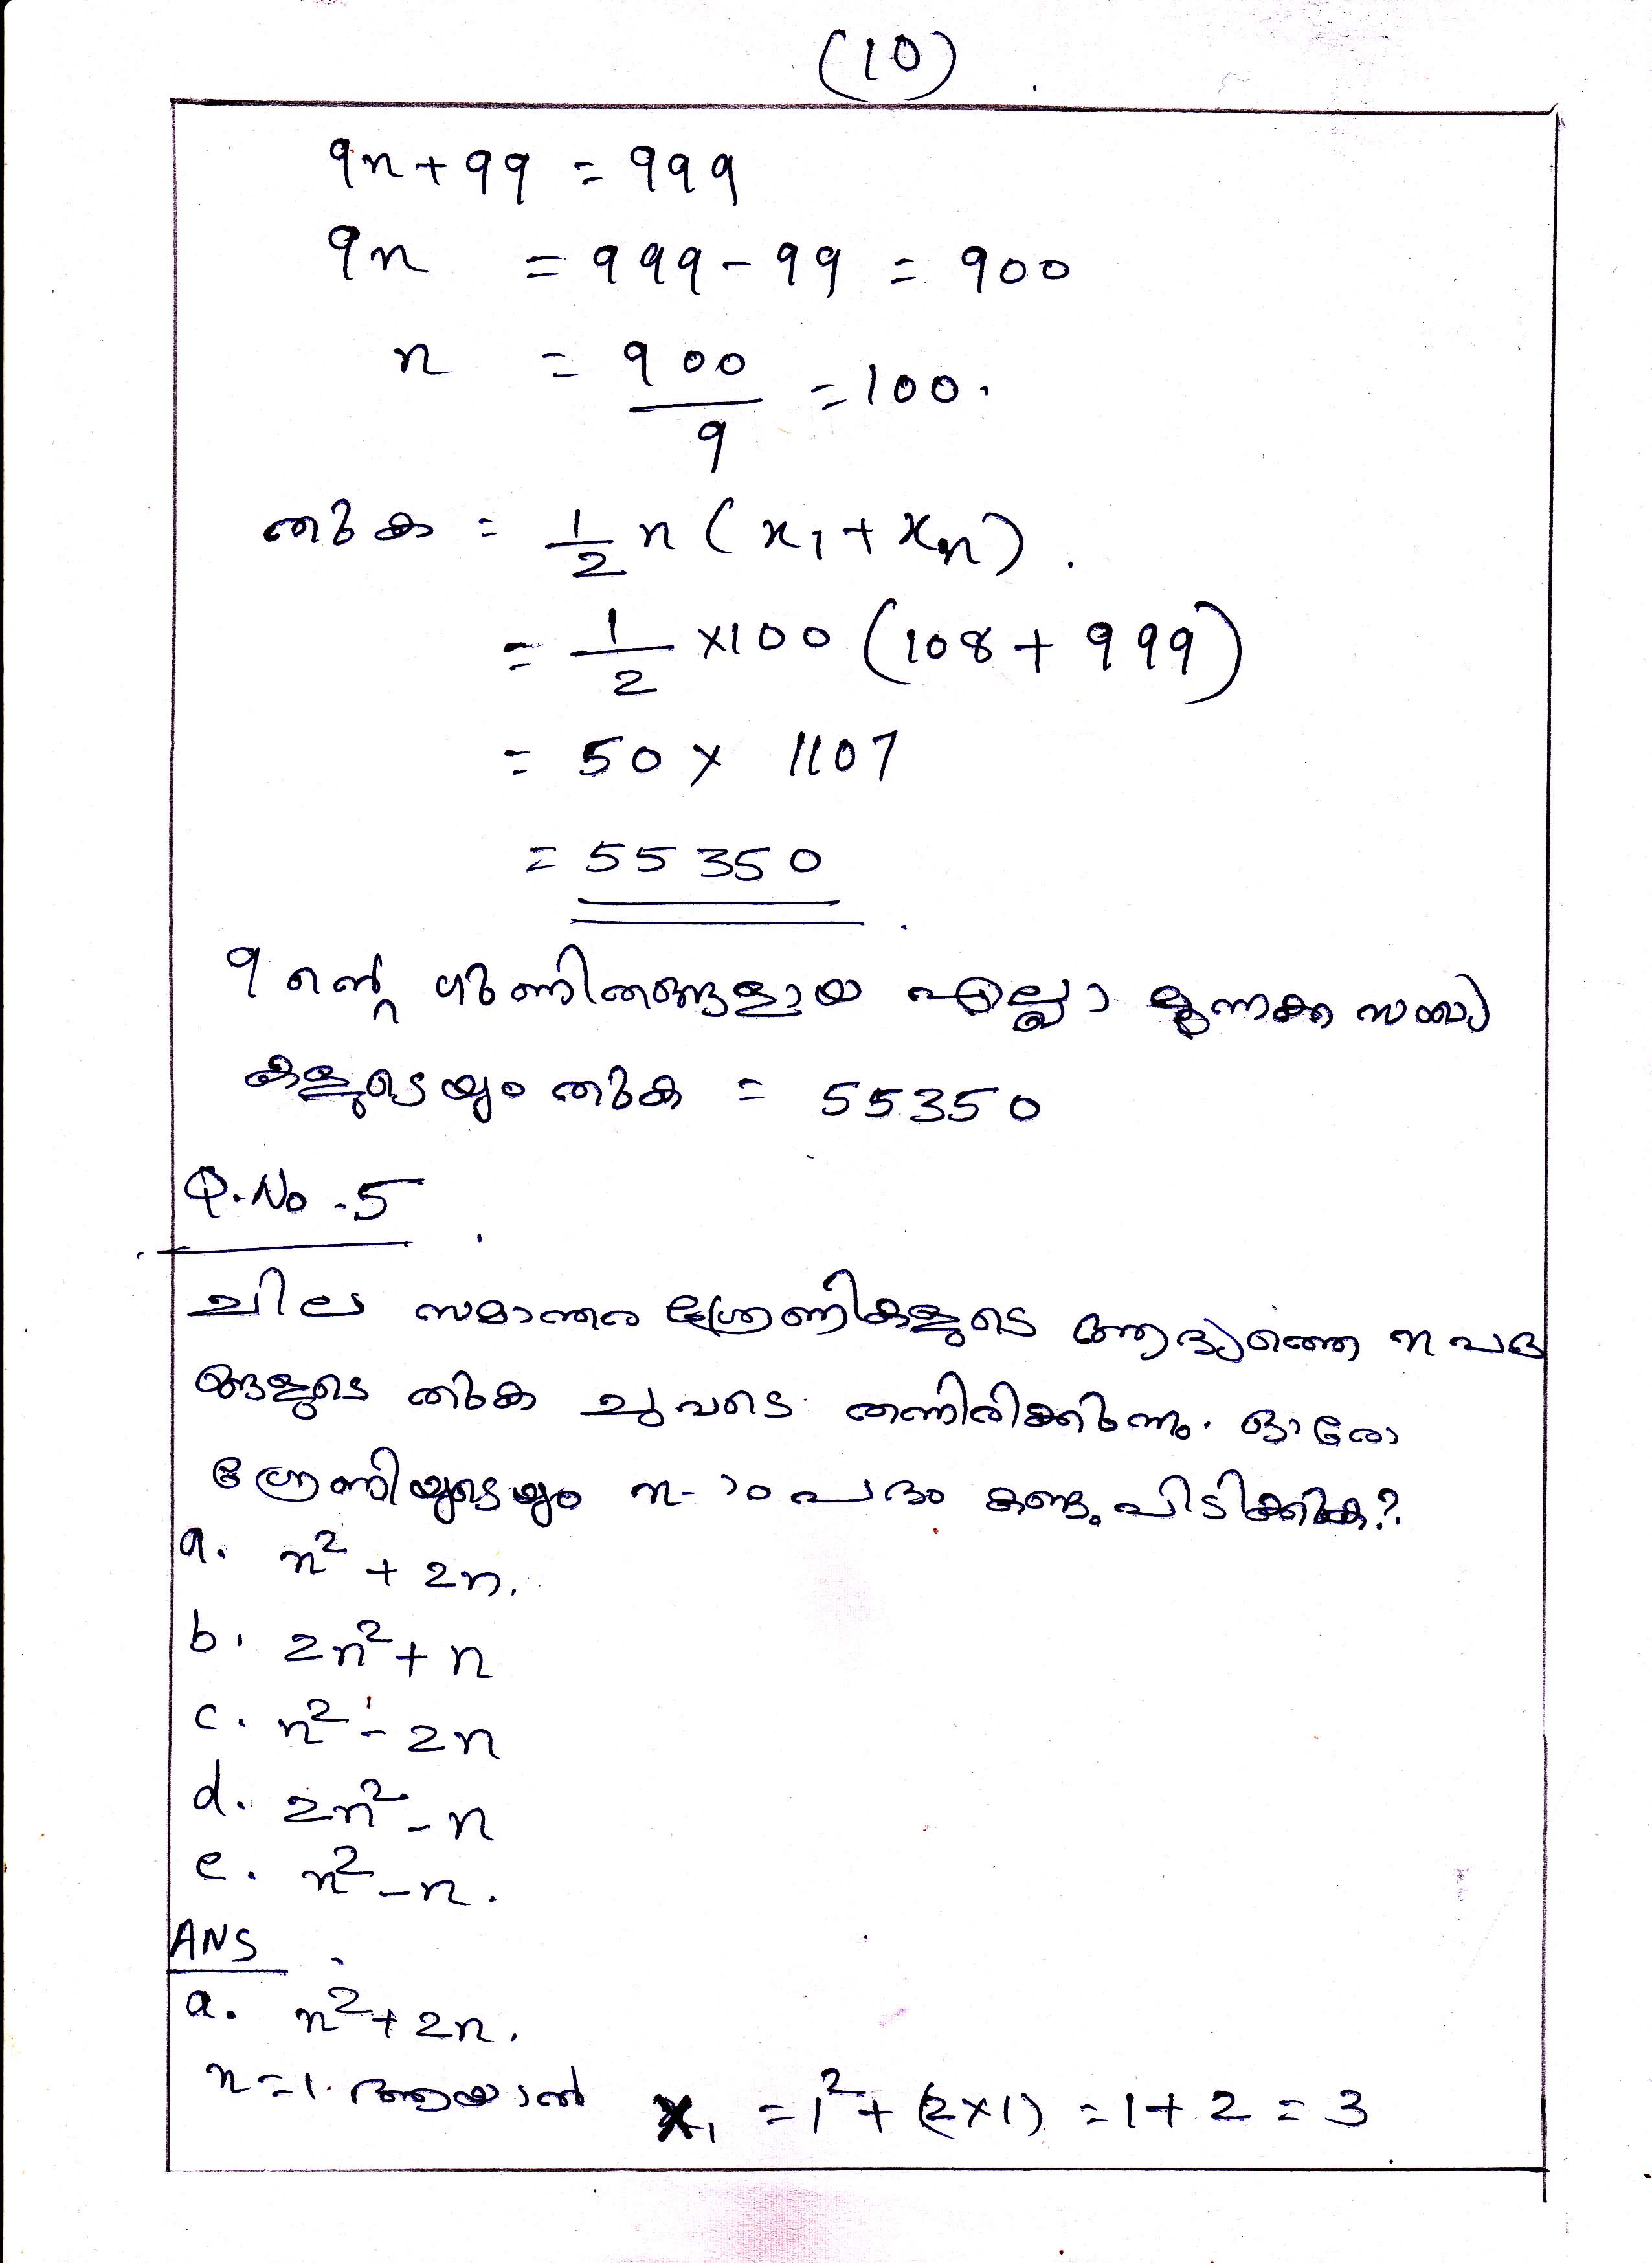 (10)
9n + 99 = 999
9n = 999 - 99 = 900
n = 900/9 = 100.
തുക = 1/2 n (x₁ + xₙ).
= 1/2 ×100 (108 + 999)
= 50 × 1107
= 55350
9 ന്റെ ഗുണിതങ്ങളായ എല്ലാ മൂന്നക്ക സംഖ്യ
കളുടെയും തുക = 55350
Q.No -5
ചില സമാന്തര ശ്രേണികളുടെ ആദ്യത്തെ n പദ
ങ്ങളുടെ തുക ചുവടെ തന്നിരിക്കുന്നു. ഓരോ
ശ്രേണിയുടെയും n-ാം പദം കണ്ടുപിടിക്കുക?
a. n² + 2n.
b. 2n² + n
c. n² - 2n
d. 2n² - n
e. n² - n.
ANS
a. n² + 2n.
n = 1 ആയാൽ x₁ = 1² + (2×1) = 1 + 2 = 3